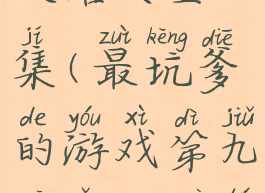 jí zuì kēng diē
集（最坑爹
de yóu xì dì jiǔ
的游戏第九